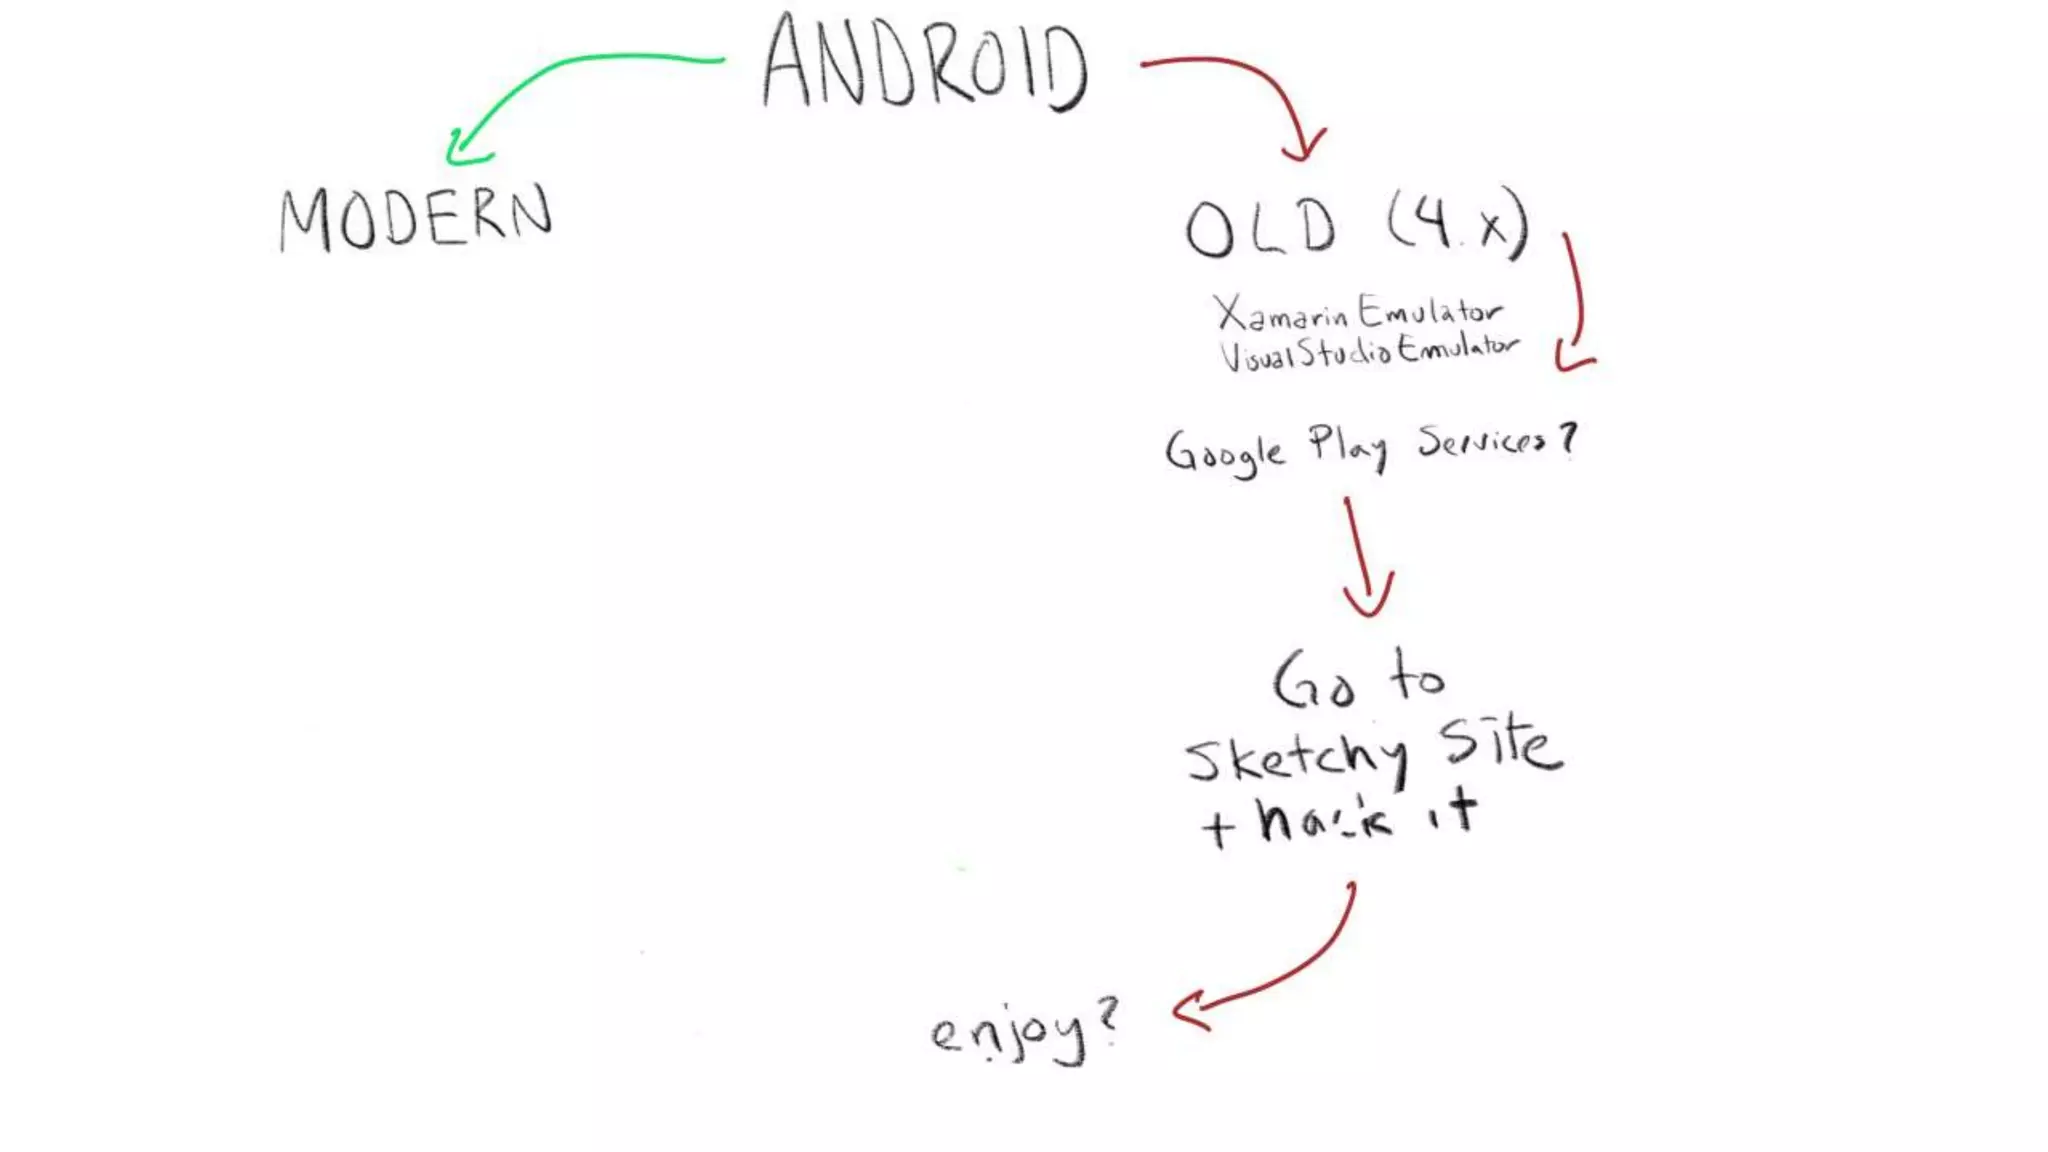 ANDROID
MODERN
OLD (4.x)
Xamarin Emulator
Visual Studio Emulator
Google Play Services?
Go to
Sketchy Site
+ hack it
enjoy?